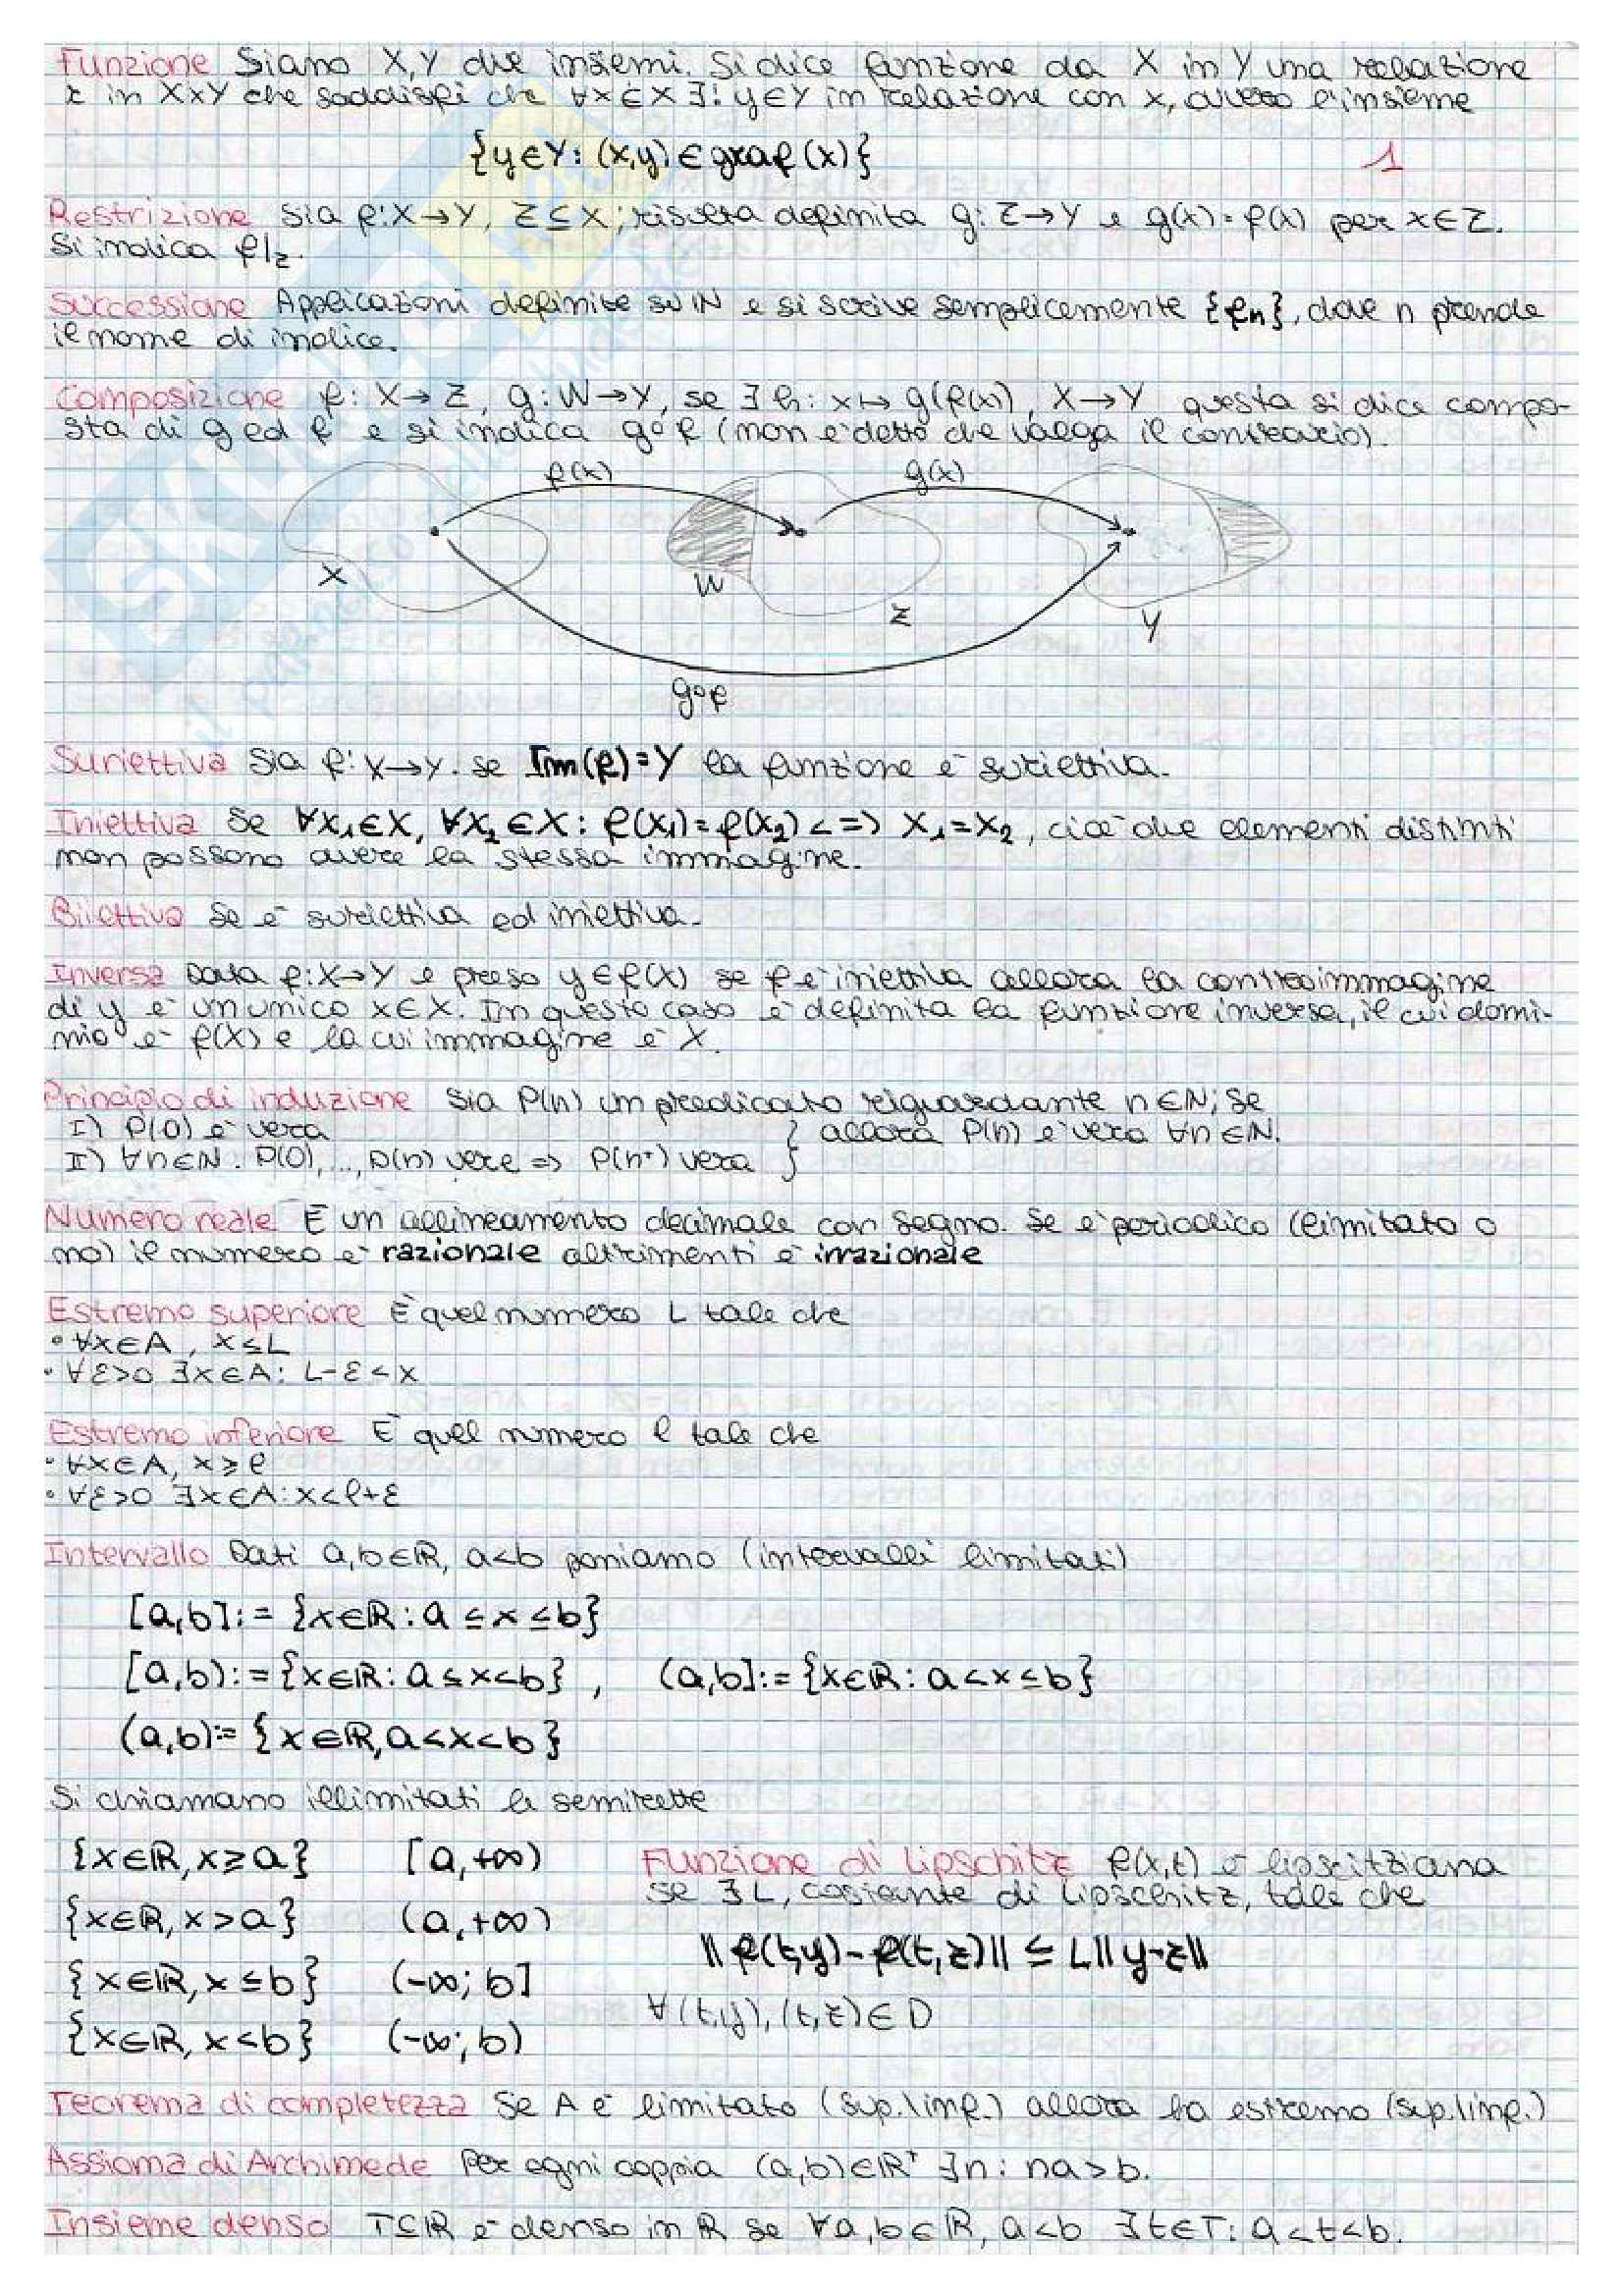 Funzione Siano X,Y due insiemi. Si dice funzione da X in Y una relazione
r in X×Y che soddisfi che ∀x∈X ∃! y∈Y in relazione con x, ovvero l'insieme
{y∈Y: (x,y)∈graf(x)}
1
Restrizione Sia f:X→Y, Z⊆X; risulta definita g: Z→Y e g(x)=f(x) per x∈Z.
Si indica f|z.
Successione Applicazioni definite su ℕ e si scrive semplicemente {fn}, dove n prende
il nome di indice.
Composizione f: X→Z, g: W→Y, se ∃ h: x↦g(f(x)), X→Y questa si dice compo-
sta di g ed f e si indica g∘f (non è detto che valga il contrario).
f(x) g(x)
X W Z Y
g∘f
Suriettiva Sia f: X→Y. se Im(f)=Y la funzione è suriettiva.
Iniettiva Se ∀x₁∈X, ∀x₂∈X: f(x₁)=f(x₂) <=> x₁=x₂, cioè due elementi distinti
non possono avere la stessa immagine.
Biiettiva Se è suriettiva ed iniettiva.
Inversa Data f:X→Y e preso y∈f(X) se f è iniettiva allora la controimmagine
di y è un unico x∈X. In questo caso è definita la funzione inversa, il cui domi-
nio è f(X) e la cui immagine è X.
Principio di induzione Sia P(n) un predicato riguardante n∈ℕ; se
I) P(0) è vera
II) ∀n∈ℕ. P(0),...,P(n) vere => P(n⁺) vera } allora P(n) è vera ∀n∈ℕ.
Numero reale È un allineamento decimale con segno. Se è periodico (limitato o
no) il numero è razionale altrimenti è irrazionale
Estremo superiore È quel numero L tale che
• ∀x∈A, x≤L
• ∀ε>0 ∃x∈A: L-ε<x
Estremo inferiore È quel numero ℓ tale che
• ∀x∈A, x≥ℓ
• ∀ε>0 ∃x∈A: x<ℓ+ε
Intervallo Dati a,b∈ℝ, a<b poniamo (intervalli limitati)
[a,b]:= {x∈ℝ: a≤x≤b}
[a,b):= {x∈ℝ: a≤x<b}, (a,b]:= {x∈ℝ: a<x≤b}
(a,b):= {x∈ℝ, a<x<b}
Si chiamano illimitati le semirette
{x∈ℝ, x≥a} [a,+∞)
{x∈ℝ, x>a} (a,+∞)
{x∈ℝ, x≤b} (-∞; b]
{x∈ℝ, x<b} (-∞; b)
Funzione di Lipschitz f(x,t) è lipscitziana
se ∃ L, costante di Lipschitz, tale che
||f(t,y)-f(t,z)|| ≤ L||y-z||
∀(t,y),(t,z)∈D
Teorema di completezza Se A è limitato (sup.\inf.) allora ha estremo (sup.\inf.)
Assioma di Archimede Per ogni coppia (a,b)∈ℝ⁺ ∃n: na>b.
Insieme denso T⊆ℝ è denso in ℝ se ∀a,b∈ℝ, a<b ∃t∈T: a<t<b.